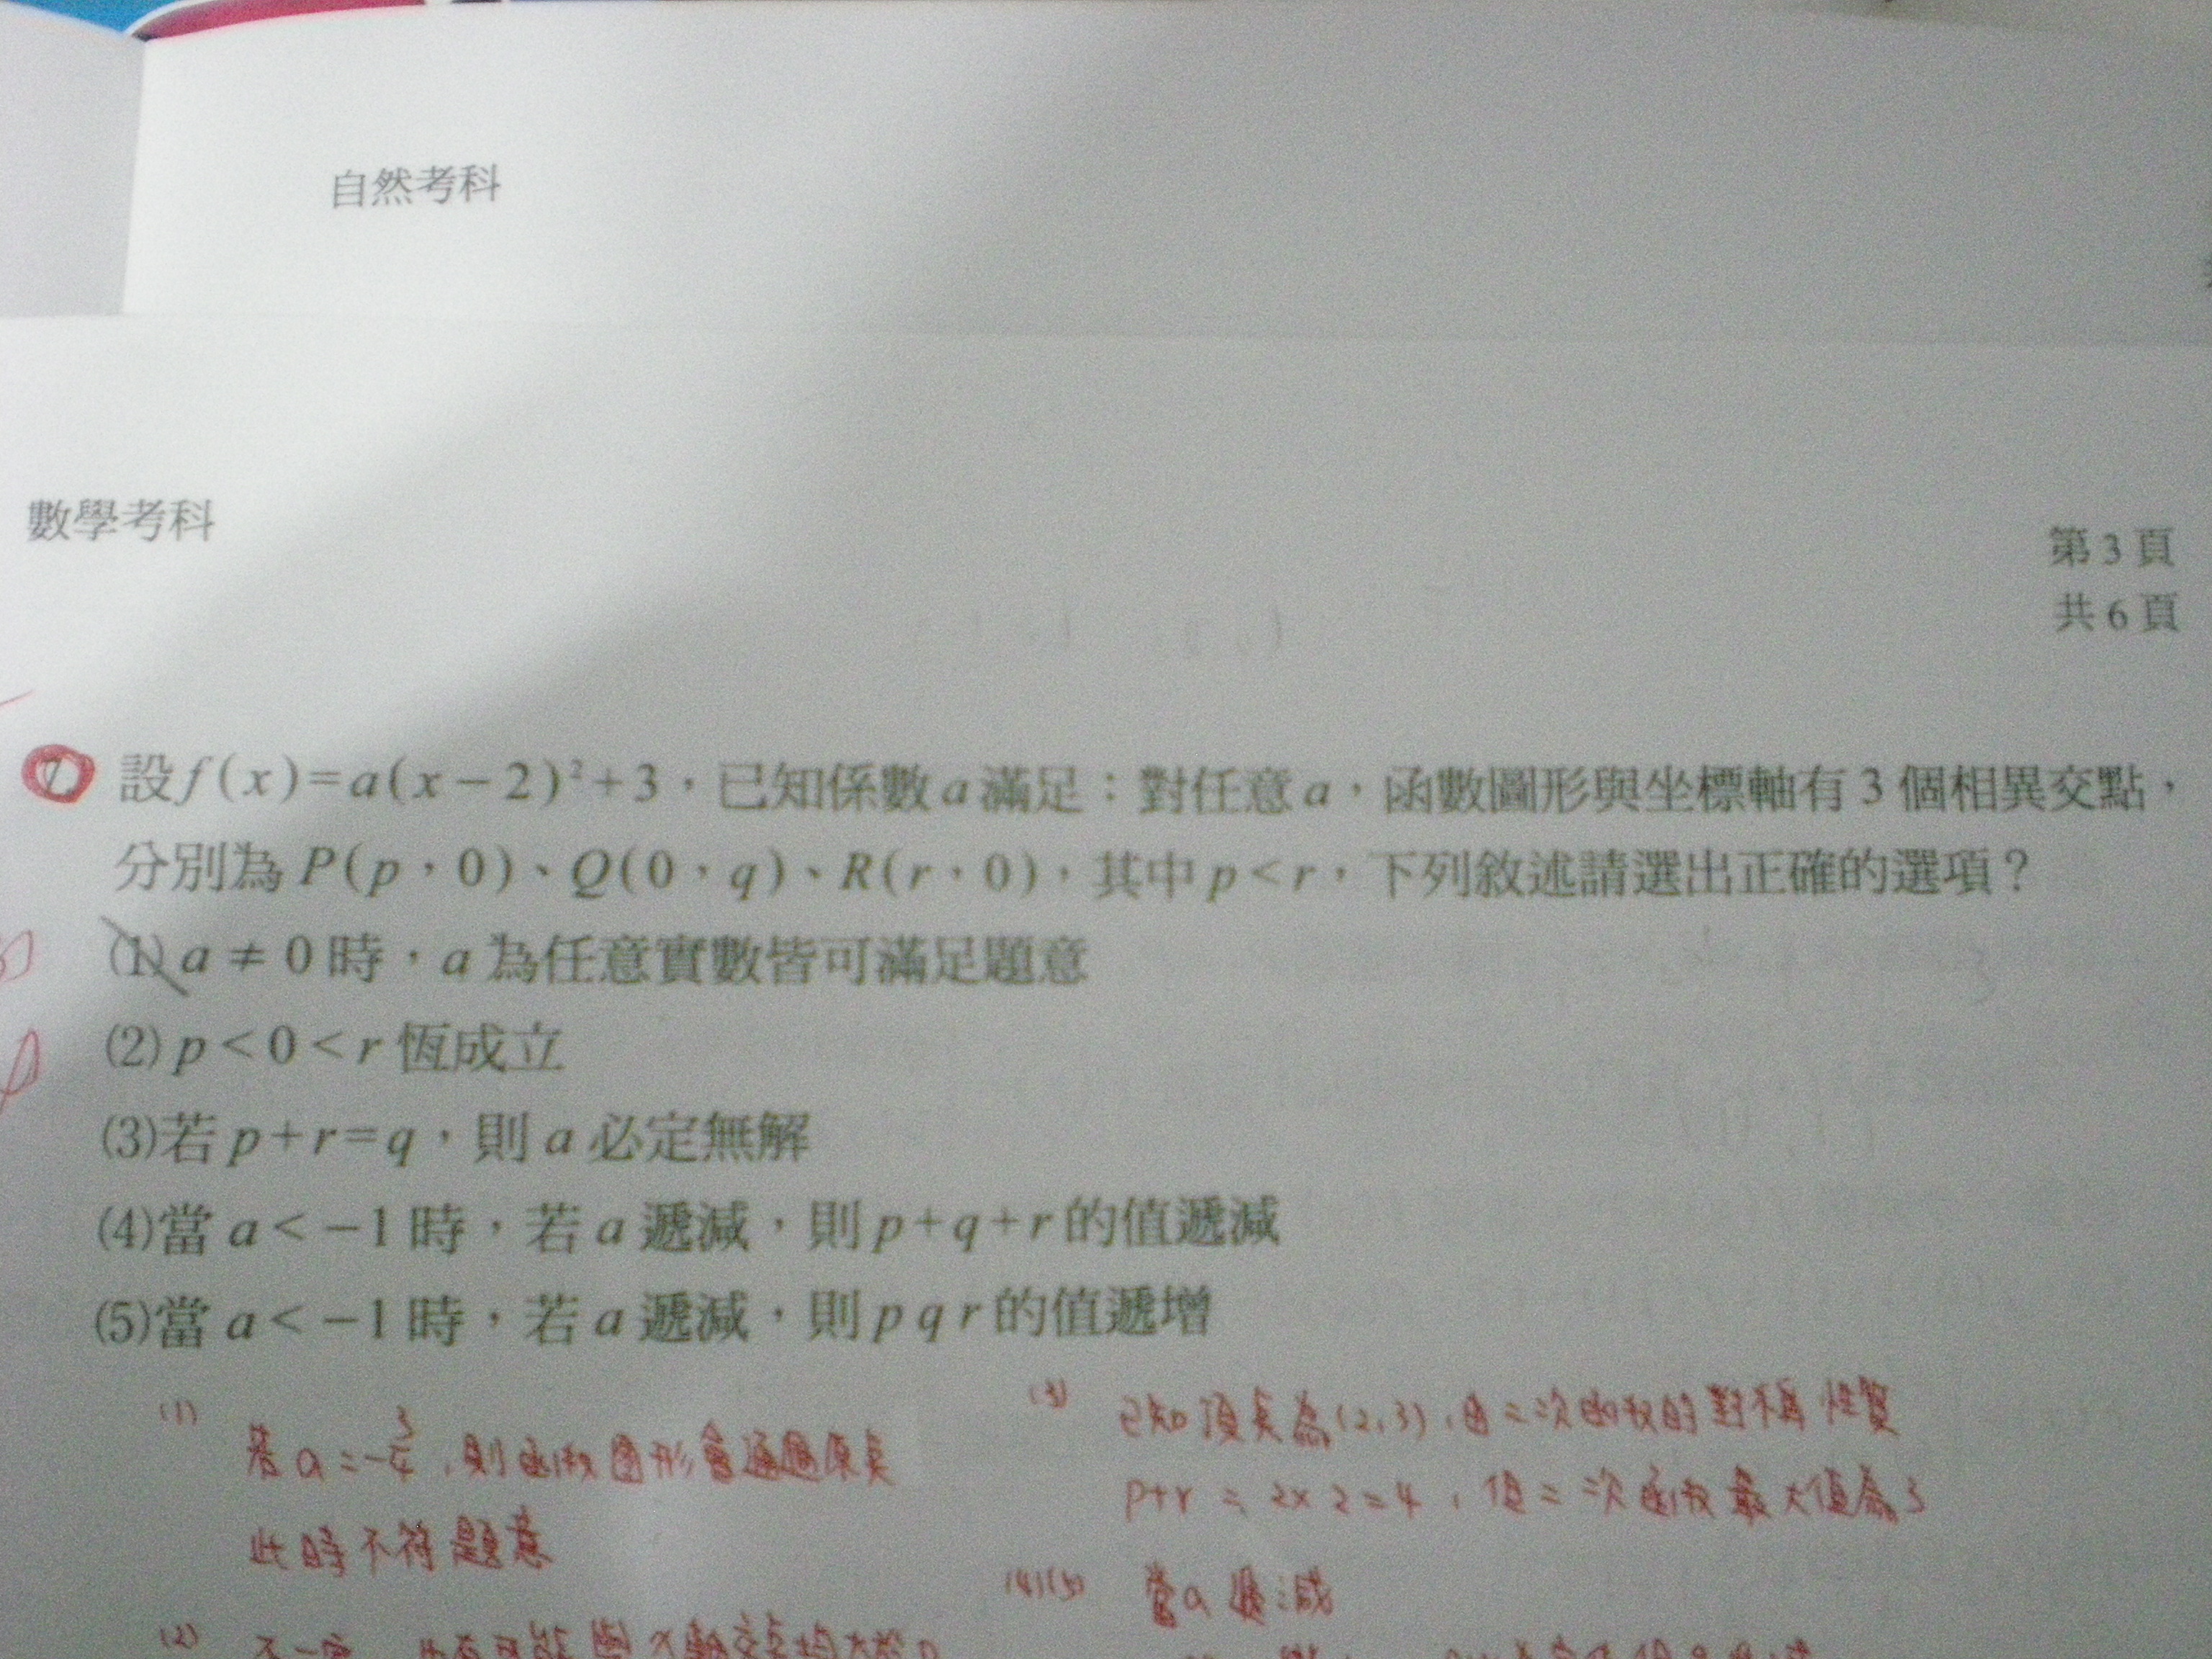 自然考科
數學考科
第3頁
共6頁
7. 設f(x)=a(x-2)²+3，已知係數a滿足：對任意a，函數圖形與坐標軸有3個相異交點，
分別為P(p，0)、Q(0，q)、R(r，0)，其中p<r，下列敘述請選出正確的選項？
(1) a≠0時，a為任意實數皆可滿足題意
(2) p<0<r恆成立
(3)若p+r=q，則a必定無解
(4)當a<-1時，若a遞減，則p+q+r的值遞減
(5)當a<-1時，若a遞減，則pqr的值遞增
(1) 若a=-3/4，則函數圖形會通過原點
此時不符題意
(2) 不一定
(3) 已知頂點為(2,3)，由二次函數的對稱性質
p+r=2×2=4，但二次函數最大值為3
(4)(5) 當a遞減